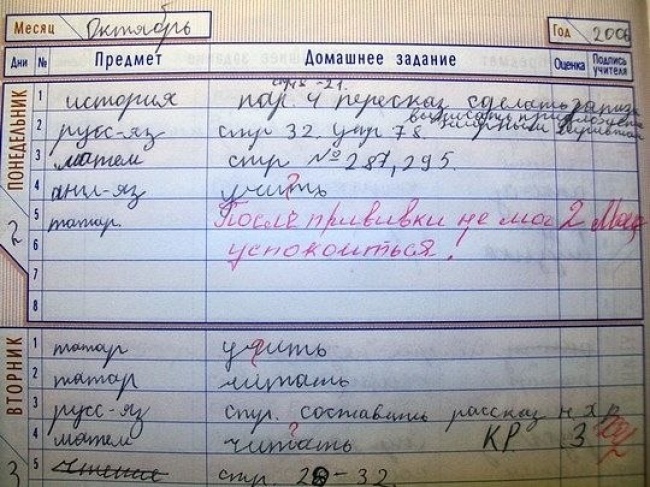 Месяц Октябрь Год 2006
Дни № Предмет Домашнее задание Оценка Подпись учителя
ПОНЕДЕЛЬНИК 2
стр 18-21.
1 история пар. 4 пересказ сделать
выписать предложения
2 русс-яз стр 32. упр 78.
3 матем стр № 287, 295.
?
4 анг-яз учить
5 татар. После прививки не мог 2
6 успокоиться!
7
8
ВТОРНИК 3
1 татар учить
2 татар читать
3 русс-яз стр. составить рассказ
?
4 матем читать КР 3
5 чтение стр. 28-32